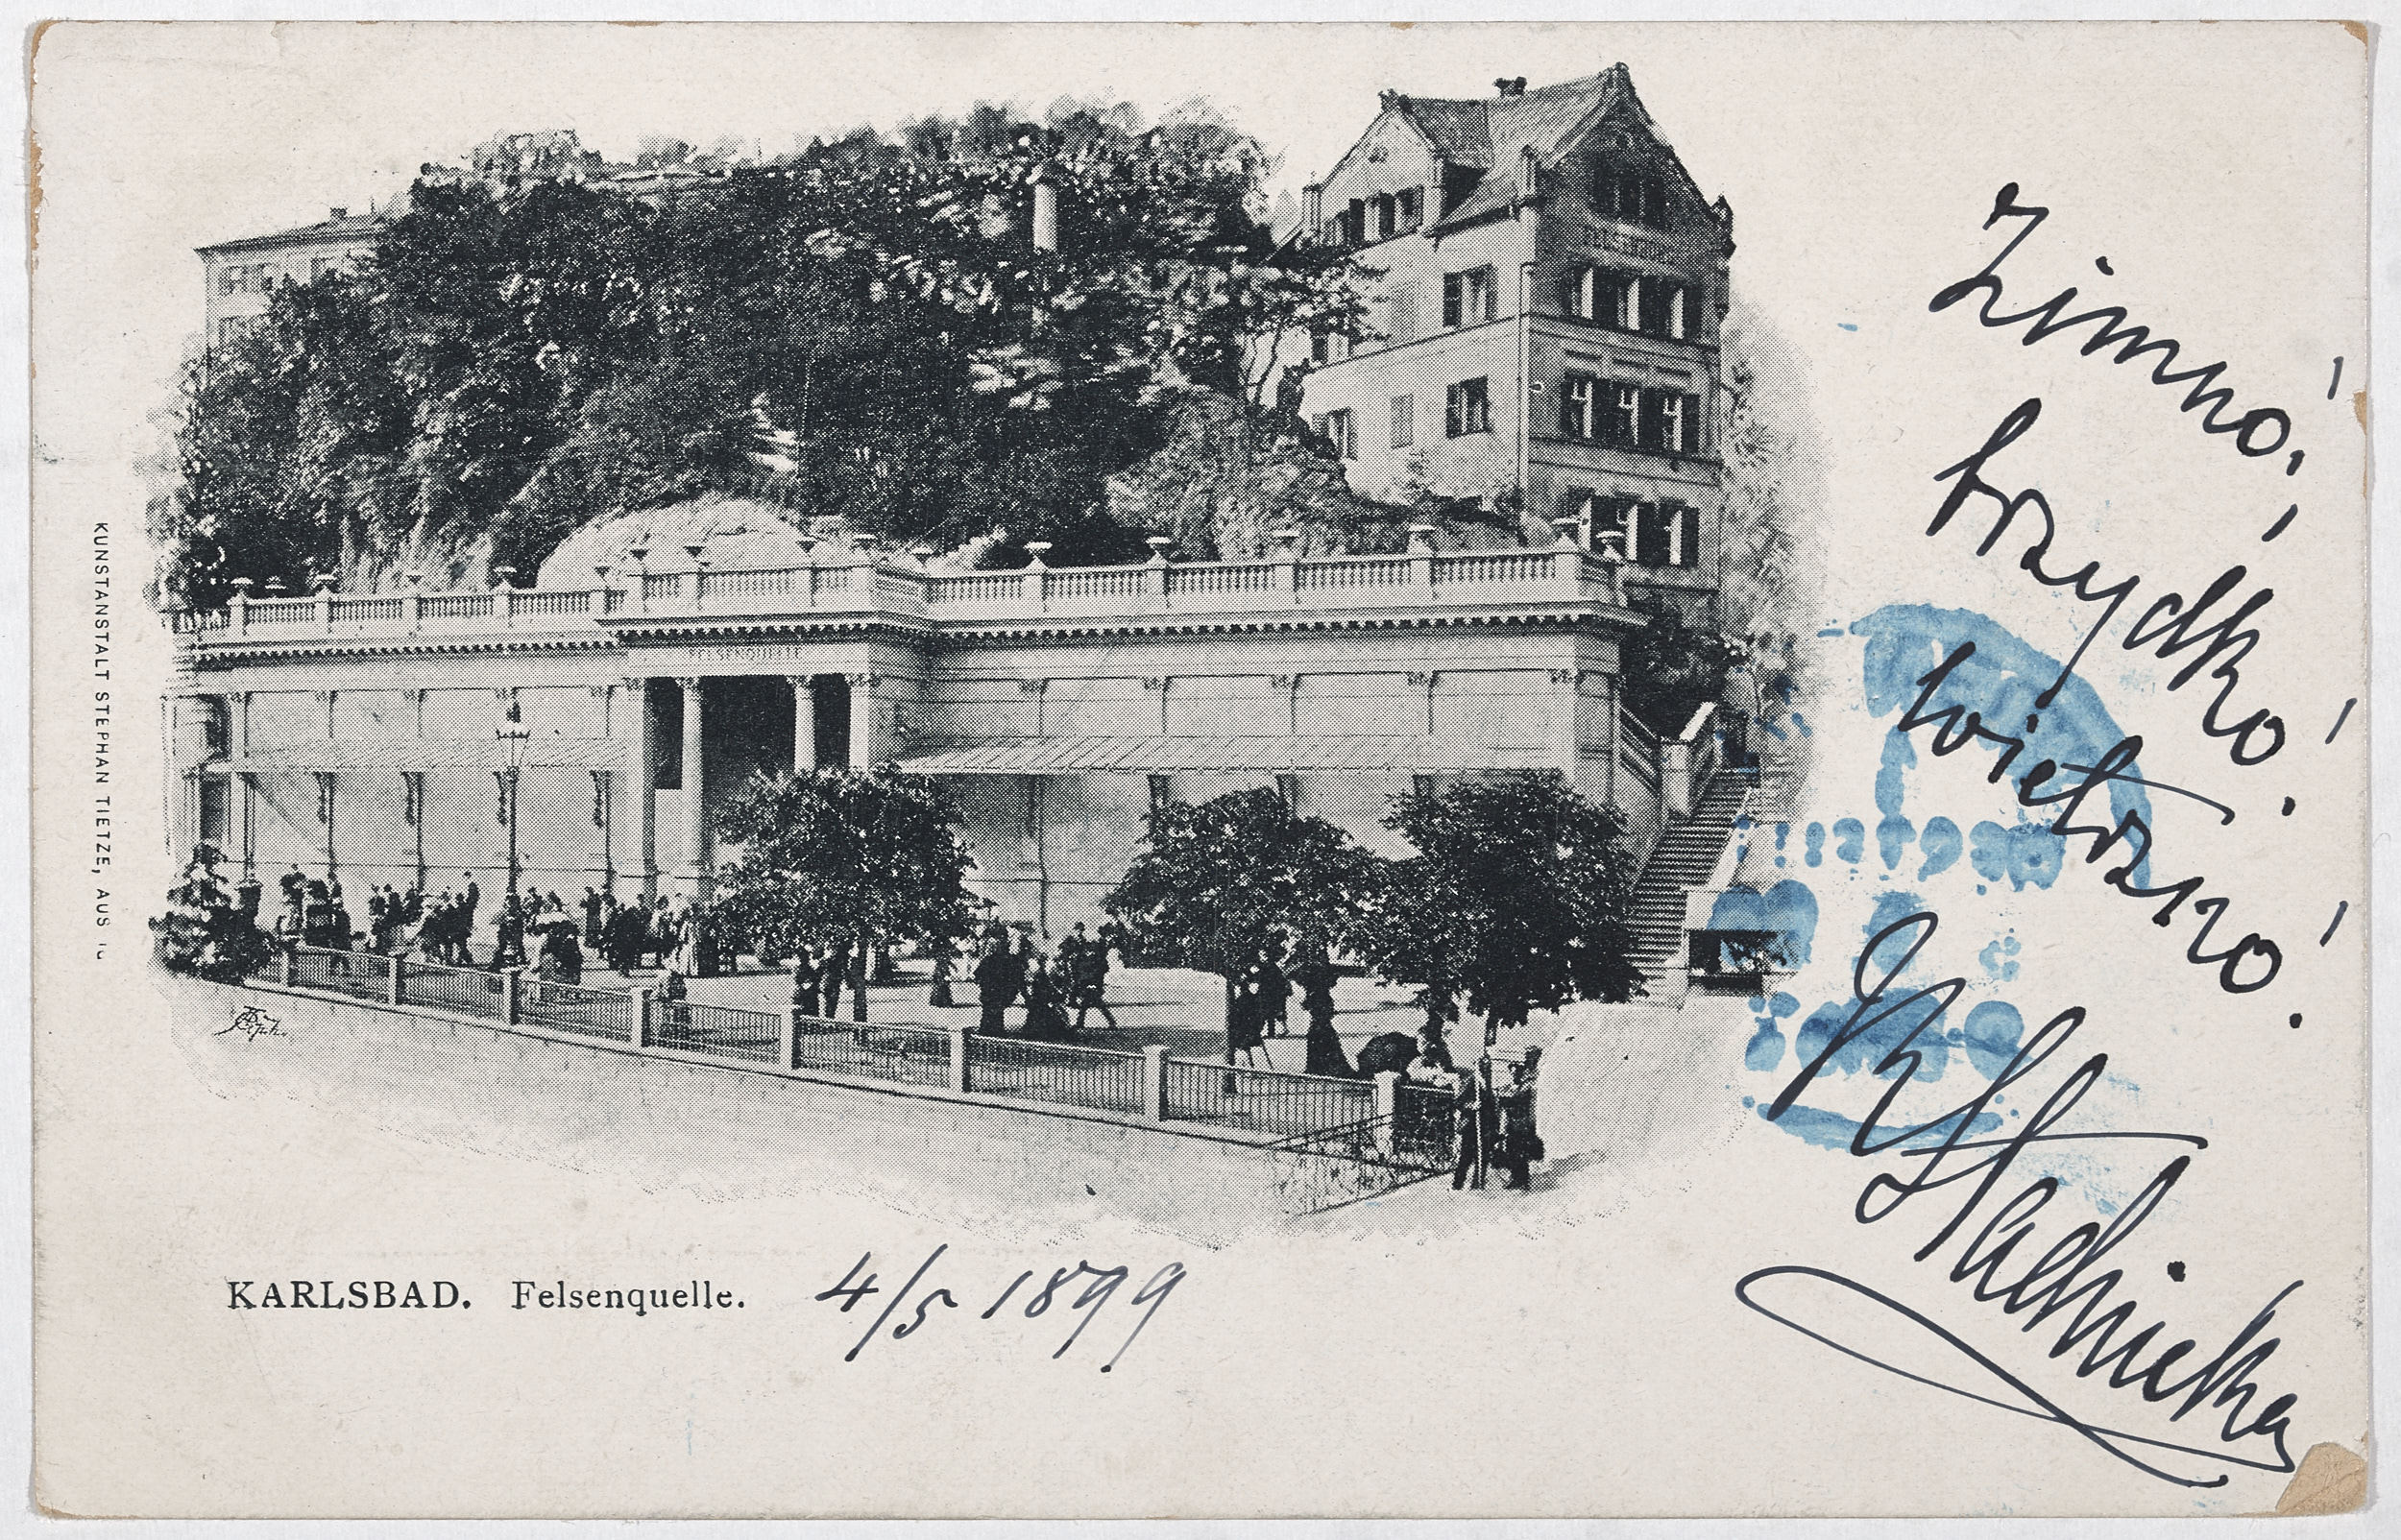 FELSENQUELLE
KUNSTANSTALT STEPHAN TIETZE, AUS
KARLSBAD. Felsenquelle. 4/5 1899
Zimno!
brzydko!
wietrzno!